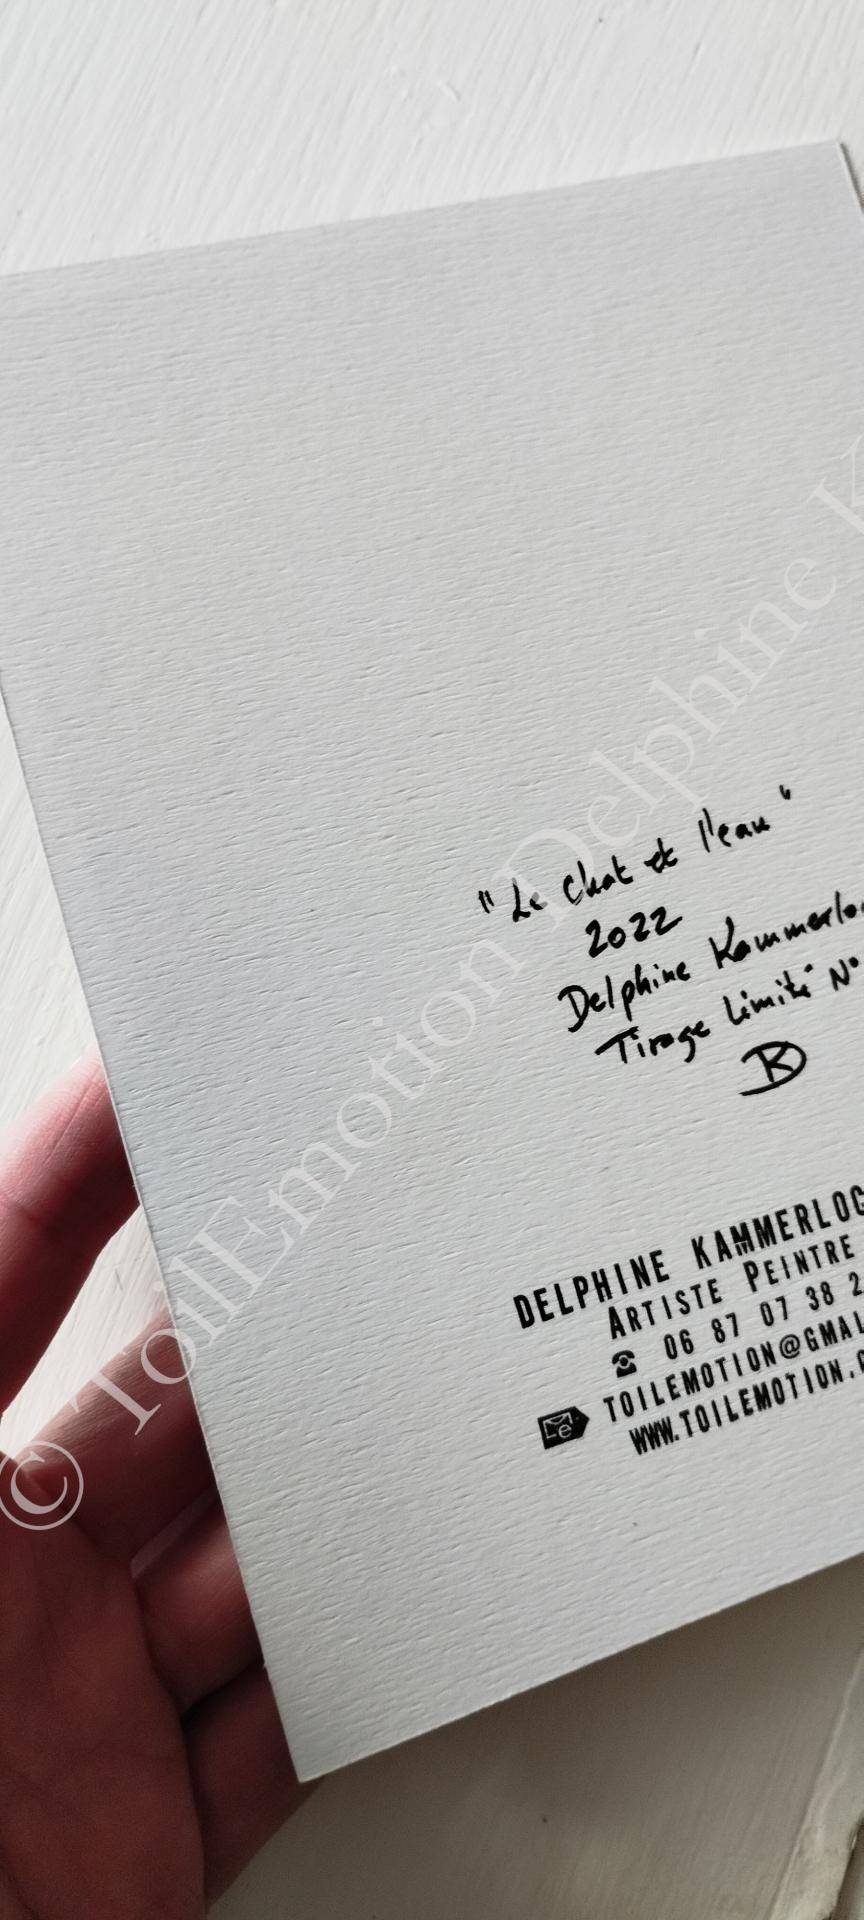 "Le chat et l'eau"
2022
Delphine Kammerlo
Tirage Limité N°
DK
DELPHINE KAMMERLOG
ARTISTE PEINTRE
☎ 06 87 07 38 2
TOILEMOTION@GMAI
WWW.TOILEMOTION.C
© ToilEmotion Delphine K